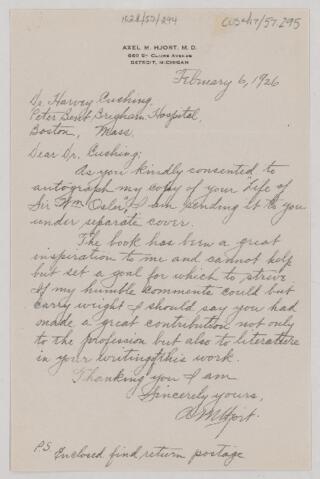 AXEL M. HJORT, M. D.
660 St. Claire Avenue
DETROIT, MICHIGAN
February 6, 1926
Dr. Harvey Cushing,
Peter Bent Brigham Hospital,
Boston, Mass.
Dear Dr. Cushing;
As you kindly consented to
autograph my copy of your "Life of
Sir Wm Osler", I am sending it to you
under separate cover.
The book has been a great
inspiration to me and cannot help
but set a goal for which to strive.
If my humble comments could but
carry weight I should say you had
made a great contribution not only
to the profession but also to literature
in your writing of this work.
Thanking you I am
Sincerely yours,
A M Hjort.
P.S. Enclosed find return postage